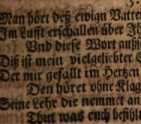 Man hört deß ewign Vatters
Im Lufft erschallen über Ih
Und diese Wort außsp
Diß ist mein vielgeliebter S
Der mir gefällt im Hertzen
Den höret ohne Klag
Seine Lehr die nemmet an
Thut was euch befihlt